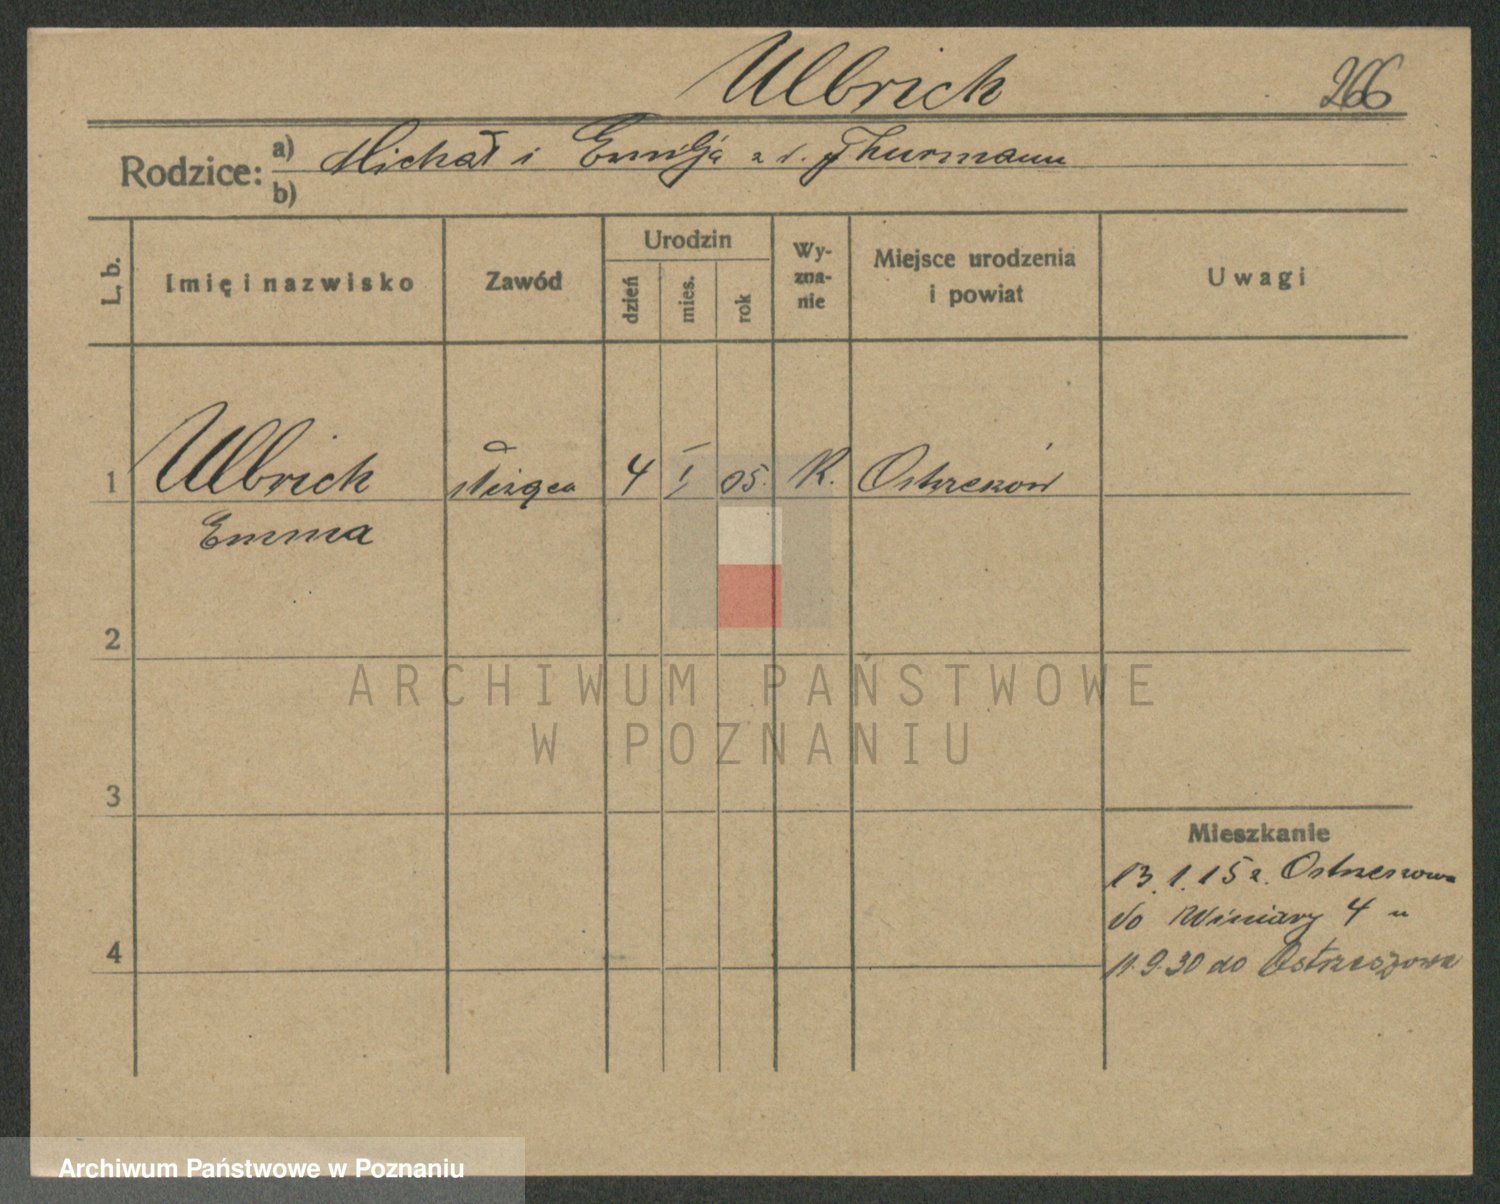 Ulbrich 266
Rodzice: a) Michał i Emilja z d. Thurmann
b)
L. b. Imię i nazwisko Zawód Urodzin dzień mies. rok Wy-zna-nie Miejsce urodzenia i powiat Uwagi
1 Ulbrich 4 I 05. K. Ostrzeszów
Emma
2
ARCHIWUM PAŃSTWOWE
W POZNANIU
3
Mieszkanie
13.1.15 z Ostrzeszowa
do Winiary 4
4
11.9.30 do Ostrzeszowa
Archiwum Państwowe w Poznaniu